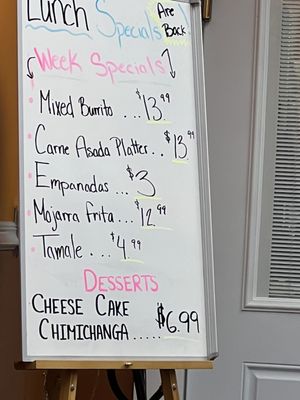 Lunch Specials Are Back
Week Specials
Mixed Burrito ... $13.99
Carne Asada Platter.. $13.99
Empanadas ... $3
Mojarra frita ... $12.99
Tamale ... $4.99
DESSERTS
CHEESE CAKE
CHIMICHANGA ..... $6.99